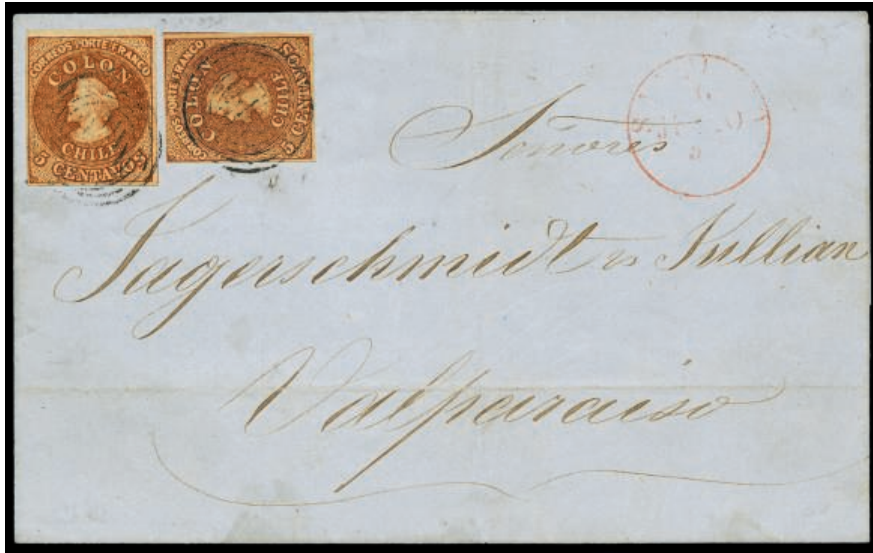 CORREOS PORTE FRANCO
COLON
CHILE
5 CENTAVOS
CORREOS PORTE FRANCO
COLON
CHILE
5 CENTAVOS
Señores
Jagerschmidt
Valparaiso